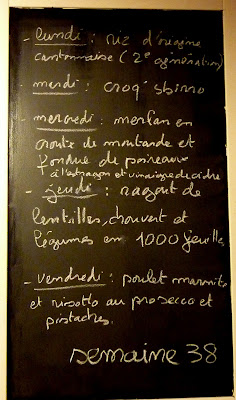 - lundi : riz d'origine
cantonnaise (2e generation)
- mardi : croq' sbirro
- mercredi : merlan en
croute de moutarde et
fondue de poireaux
à l'estragon et vinaigre de cidre
- jeudi : ragout de
lentilles, chouvert et
légumes en 1000 feuilles
- vendredi : poulet marmite
et risotto au prosecco et
pistaches.
semaine 38